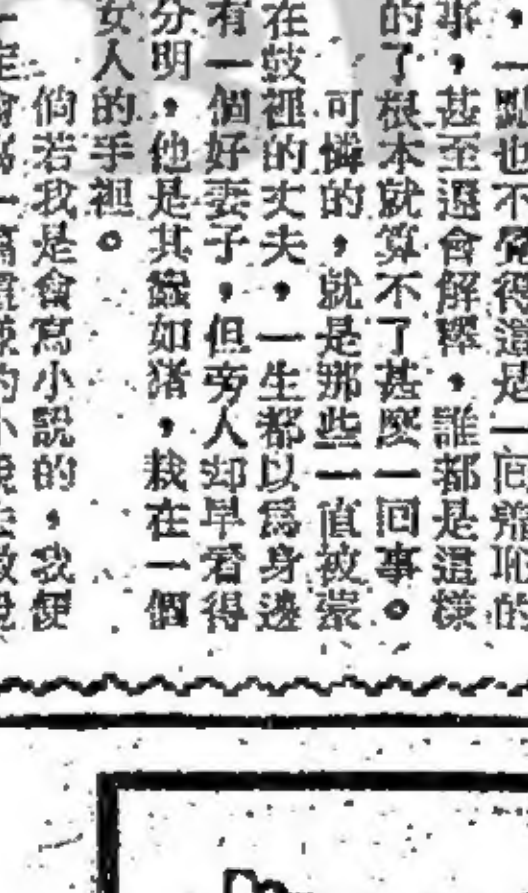 ，一點也不覺得這是一回羞恥的
事，甚至還會解釋，誰都是這樣
的了根本就算不了甚麼一回事。
可憐的，就是那些一直被蒙
在鼓裡的丈夫，一生都以爲身邊
有一個好妻子，但旁人却早看得
分明，他是其蠢如猪，栽在一個
女人的手裡。
倘若我是會寫小說的，我便
一定會寫一篇